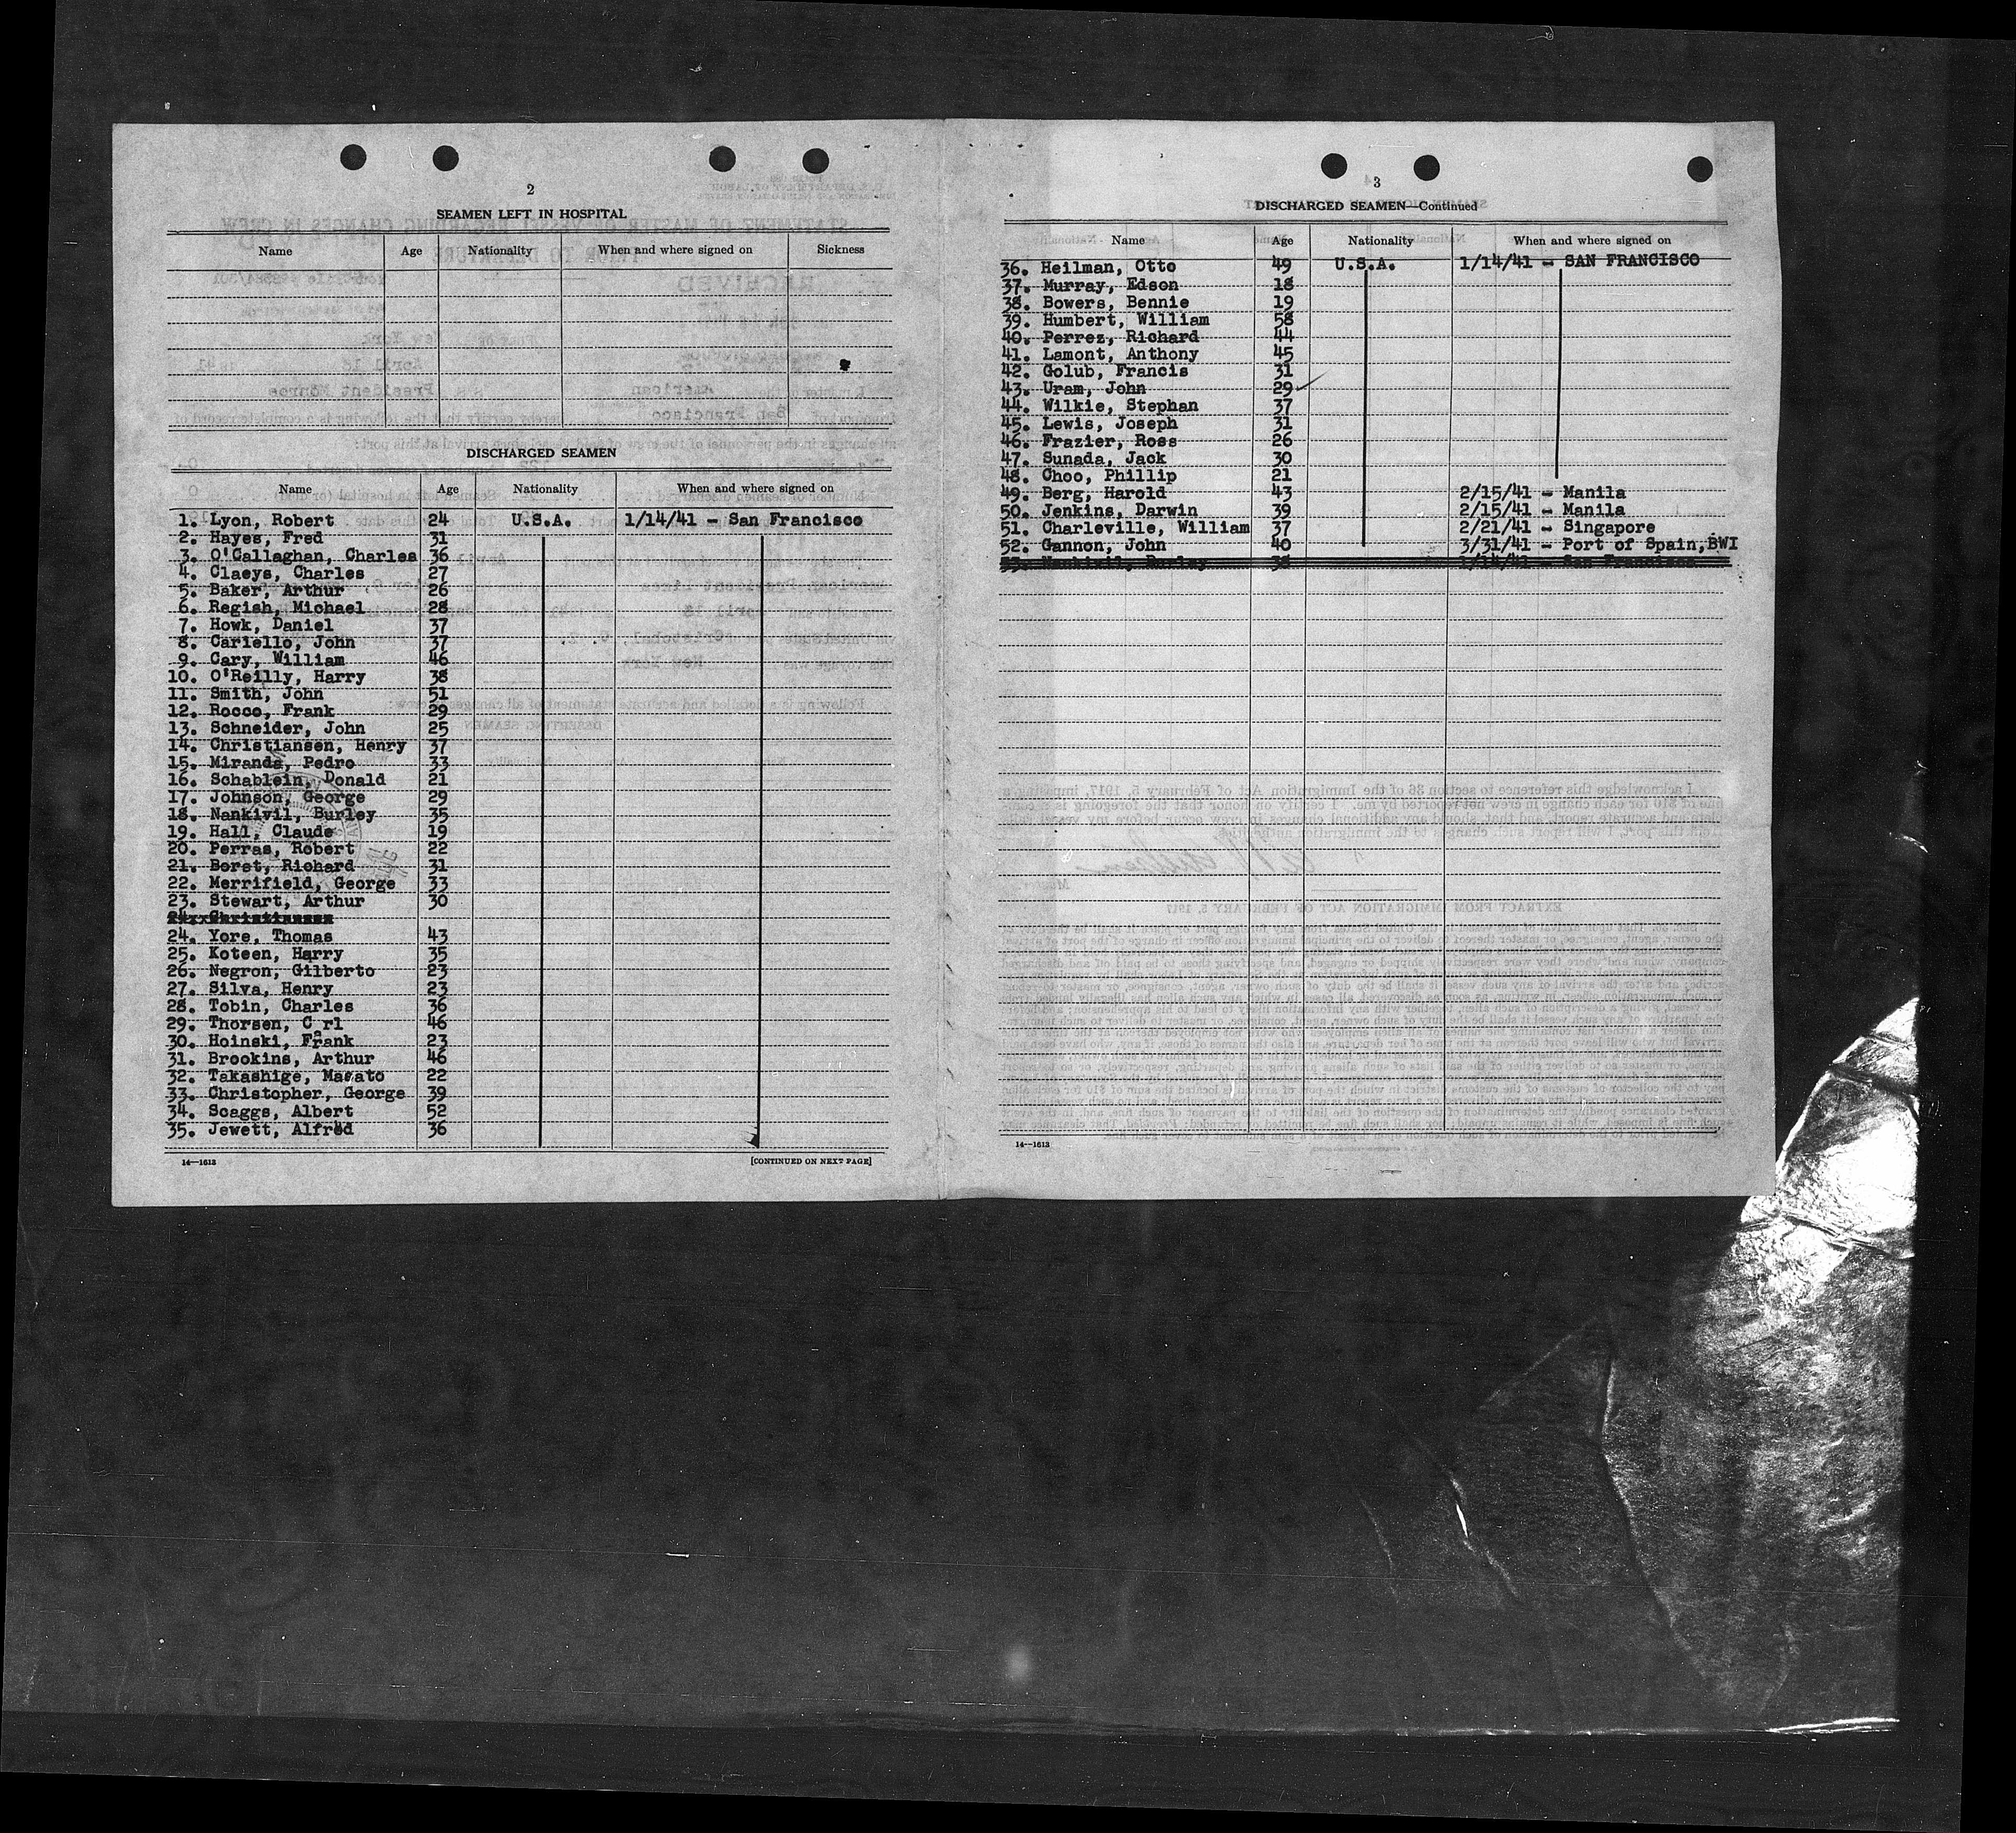 2
SEAMEN LEFT IN HOSPITAL
Name Age Nationality When and where signed on Sickness
DISCHARGED SEAMEN
Name Age Nationality When and where signed on
1. Lyon, Robert 24 U.S.A. 1/14/41 - San Francisco
2. Hayes, Fred 31
3. O'Callaghan, Charles 36
4. Claeys, Charles 27
5. Baker, Arthur 26
6. Regish, Michael 28
7. Howk, Daniel 37
8. Cariello, John 37
9. Cary, William 46
10. O'Reilly, Harry 38
11. Smith, John 51
12. Rocco, Frank 29
13. Schneider, John 25
14. Christiansen, Henry 37
15. Miranda, Pedro 33
16. Schablein, Donald 21
17. Johnson, George 29
18. Nankivil, Burley 35
19. Hall, Claude 19
20. Perras, Robert 22
21. Borst, Richard 31
22. Merrifield, George 33
23. Stewart, Arthur 30
24. Yore, Thomas 43
25. Koteen, Harry 35
26. Negron, Gilberto 23
27. Silva, Henry 23
28. Tobin, Charles 36
29. Thorsen, Carl 46
30. Hoinski, Frank 23
31. Brookins, Arthur 46
32. Takashige, Masato 22
33. Christopher, George 39
34. Scaggs, Albert 52
35. Jewett, Alfred 36
14—1613 [CONTINUED ON NEXT PAGE]
3
DISCHARGED SEAMEN—Continued
Name Age Nationality When and where signed on
36. Heilman, Otto 49 U.S.A. 1/14/41 - SAN FRANCISCO
37. Murray, Edson 18
38. Bowers, Bennie 19
39. Humbert, William 58
40. Perrez, Richard 44
41. Lamont, Anthony 45
42. Golub, Francis 31
43. Uram, John 29
44. Wilkie, Stephan 37
45. Lewis, Joseph 31
46. Frazier, Ross 26
47. Sunada, Jack 30
48. Choo, Phillip 21
49. Berg, Harold 43 2/15/41 - Manila
50. Jenkins, Darwin 39 2/15/41 - Manila
51. Charleville, William 37 2/21/41 - Singapore
52. Gannon, John 40 3/31/41 - Port of Spain, BWI
53. Nankivil, Burley 1/14/41 - San Francisco
14—1613